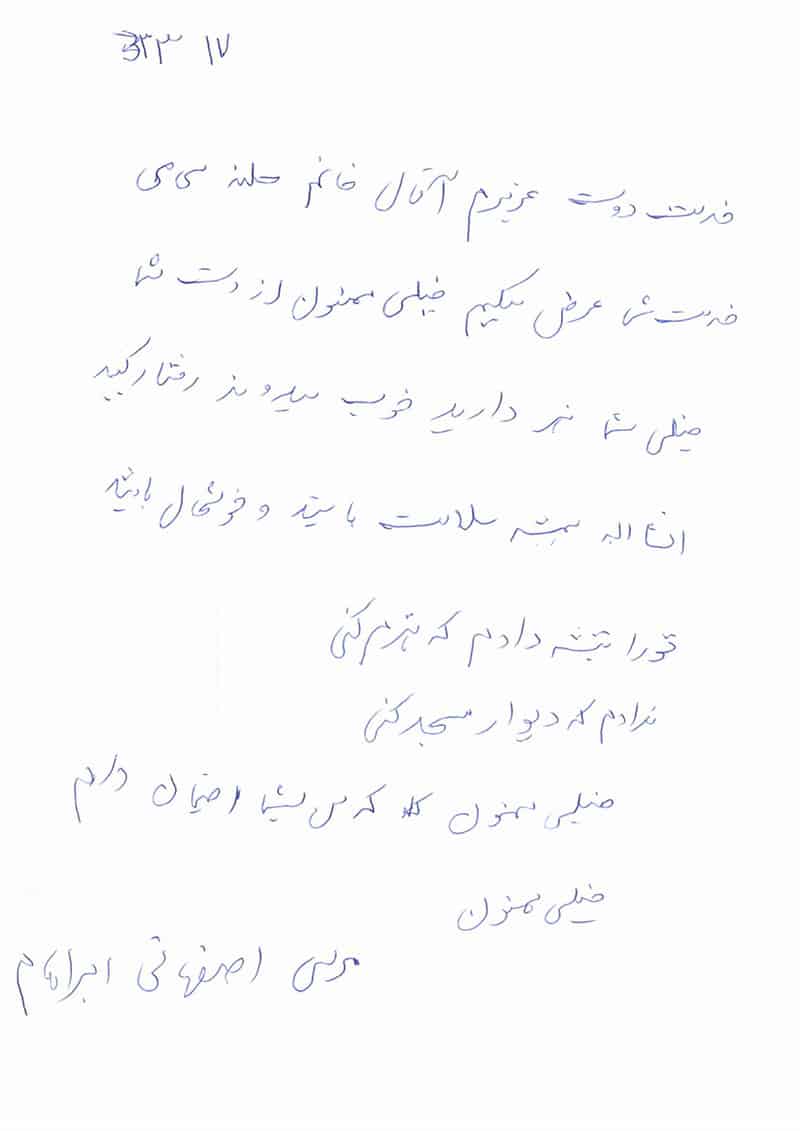 خدمت دوست عزیزم آقای خانم
خدمت شما عرض میکنیم خیلی ممنون از دست شما
خیلی شما هنر دارید خوب رفتار کنید
انشاالله همیشه سلامت باشید و خوشحال باشید
تورا تیشه دادم که هیزم کنی
ندادم که دیوار مسجد کنی
خیلی ممنون که من بشما دارم
خیلی ممنون
اصفهانی ابراهام